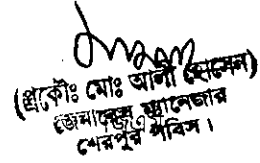 (প্রকৌঃ মোঃ আলী হোসেন)
জেনারেল ম্যানেজার
শেরপুর পবিস।